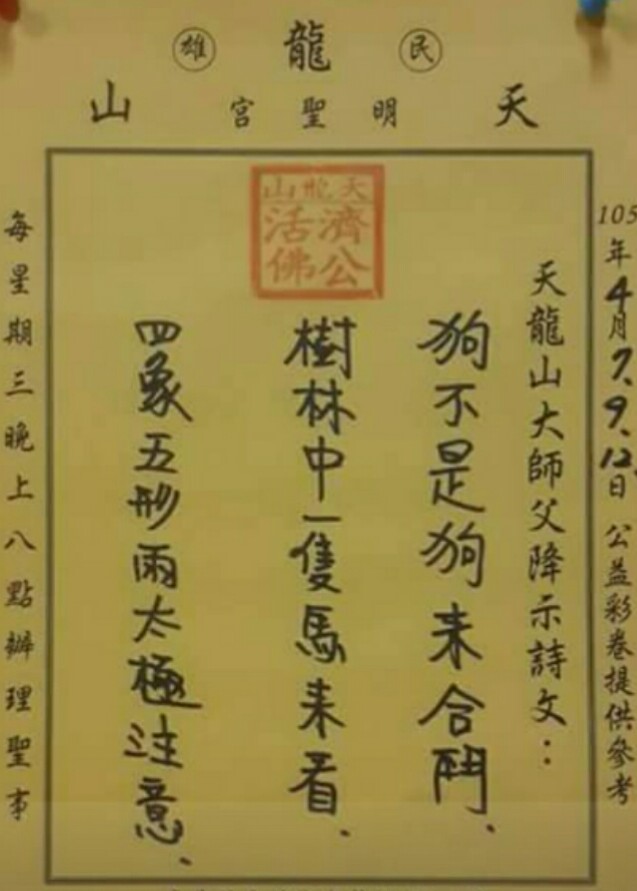 雄 龍 民
山 宮聖明 天
105年4月7.9.12.日 公益彩卷提供參考
天龍山大師父降示詩文：
天龍山
濟公
活佛
狗不是狗来合鬥、
樹林中一隻馬来看、
四象五形雨太極注意、
每星期三晚上八點辦理聖事